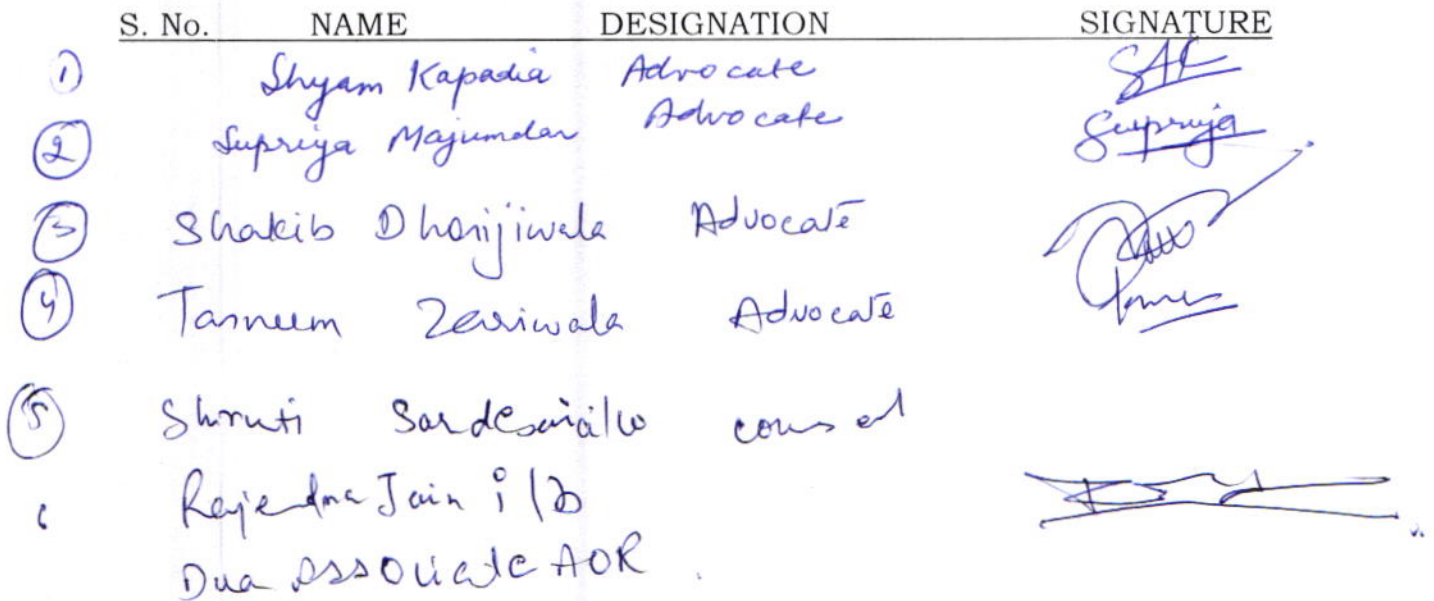 S. No. NAME DESIGNATION SIGNATURE
1) Shyam Kapadia Advocate
2 Supriya Majumdar Advocate Supriya
3 Shakib Dhorijiwala Advocate
4 Tasneem Zariwala Advocate
5 Shruti Sardesai counsel
6 Rajendra Jain i/b
Dua Associate AOR